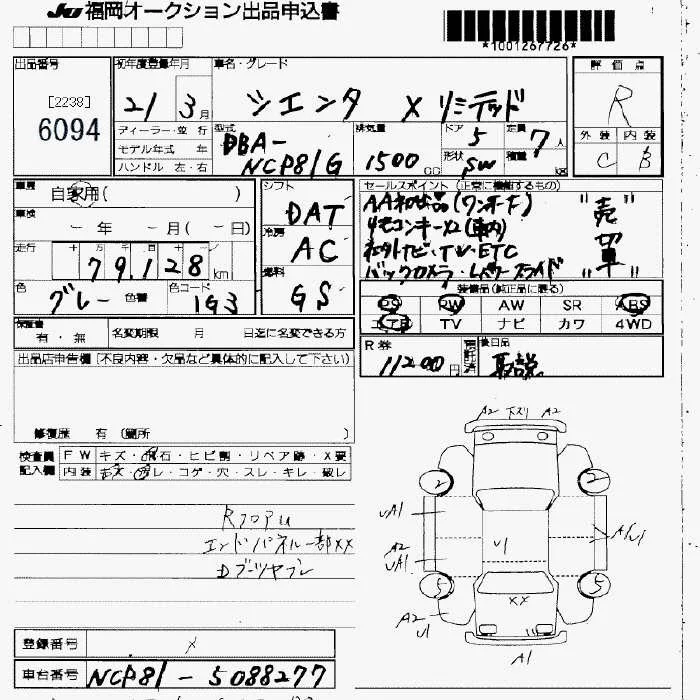 JU 福岡オークション出品申込書
*1001267726*
出品番号
[2238]
6094
初年度登録年月
21 3月
車名・グレード
シエンタ X リミテッド
評価点
R
ディーラー・並行
モデル年式 年
ハンドル 左・右
型式
DBA-
NCP81G
排気量
1500 CC
ドア 5
形状 SW
定員 7人
積重 kg
外装 内装
C B
車歴
自家用( )
車検
- 年 - 月 (- 日)
走行
十 万 千 百 十
79,128 km
色
グレー 色替
色コード
1G3
シフト
DAT
冷房
AC
燃料
GS
セールスポイント (正常に機能するもの)
AA初出品(ワンオーナー)
リモコンキーX2(車内)
社外ナビ・TV・ETC
バックカメラ・Lパワースライド
"売切車"
装備品(純正品に限る)
PS PW AW SR ABS
エアB TV ナビ カワ 4WD
保証書
有・無
名変期限 月 日迄に名変できる方
R券
11200円
預託済
後日品
取説
出品店申告欄 [不良内容・欠品など具体的に記入して下さい]
修復歴 有 (箇所 )
検査員記入欄
FW キズ・飛石・ヒビ割・リペア跡・X要
内装 キズ・汚レ・コゲ・穴・スレ・キレ・破レ
RフロアU
エンドパネル一部XX
Dブーツヤブレ
A2 下スリ A2
2 2
UA1
A2
UA1
U1
A1U1
5 5
XX
A2
U1
A1
登録番号
車台番号 NCP81-5088277